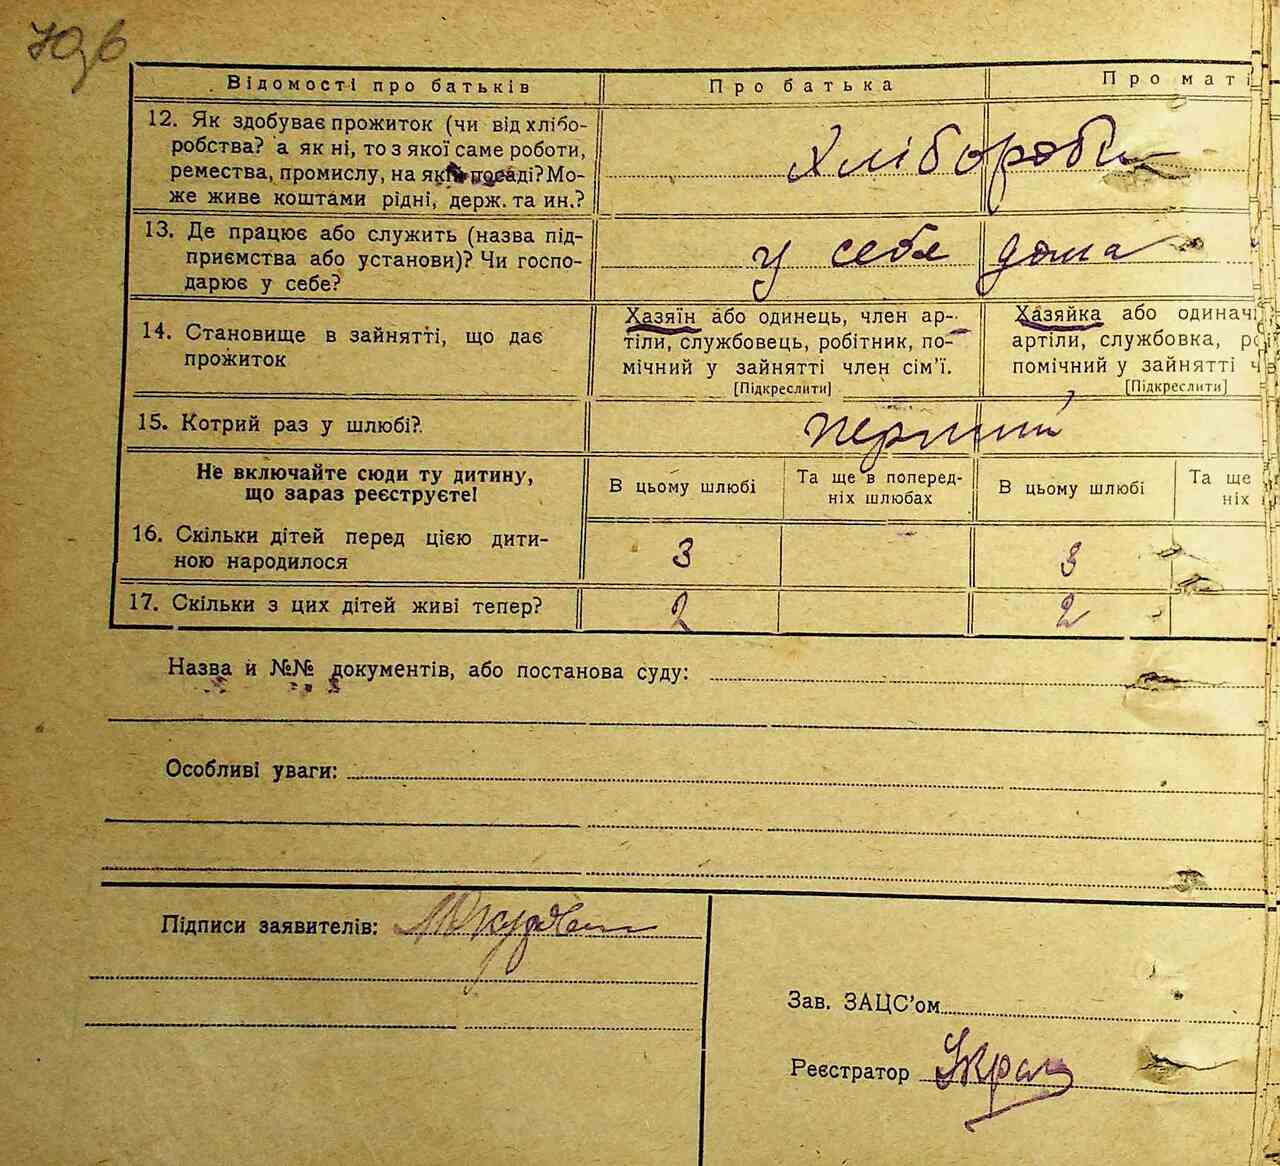 Відомості про батьків
Про батька
Про маті
12. Як здобуває прожиток (чи від хлібо-
робства? а як ні, то з якої саме роботи,
ремества, промислу, на якій посаді? Мо-
же живе коштами рідні, держ. та ин.?
хлібороби
13. Де працює або служить (назва під-
приємства або установи)? Чи госпо-
дарює у себе?
у себе дома
14. Становище в зайнятті, що дає
прожиток
Хазяїн або одинець, член ар-
тіли, службовець, робітник, по-
мічний у зайнятті член сім'ї.
[Підкреслити]
Хазяйка або одинач
артіли, службовка, ро
помічний у зайнятті ч
[Підкреслити]
15. Котрий раз у шлюбі?
перший
Не включайте сюди ту дитину,
що зараз реєструєте!
В цьому шлюбі
Та ще в поперед-
ніх шлюбах
В цьому шлюбі
Та ще
ніх
16. Скільки дітей перед цією дити-
ною народилося
3
3
17. Скільки з цих дітей живі тепер?
2
2
Назва й №№ документів, або постанова суду:
Особливі уваги:
Підписи заявителів:
Зав. ЗАЦС'ом
Реєстратор